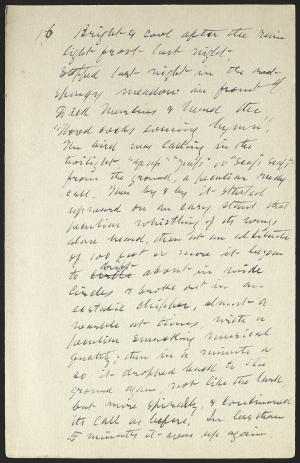 16 Bright & cool after the rain
light frost last night.
Stopped last night in the
spongy meadow in front of
Dick Martins & heard the
"Wood cocks evening hymn".
The bird was calling in the
twilight "speap" "speap", or "seap seap",
from the ground, a peculiar reedy
call. Then by & by it started
upward on an easy slant that
peculiar whistling of its wings
alone heard, then at an altitude
of 100 feet or more it began
to circle drift about in wide
circles & broke out in an
ecstatic chipper, almost a
warble at times, with a
peculiar smacking musical
quality; then in a minute or
so it dropped back to the
ground again, not like the lark,
but more spirally, & continued
its call as before. In less than
5 minutes it was up again.